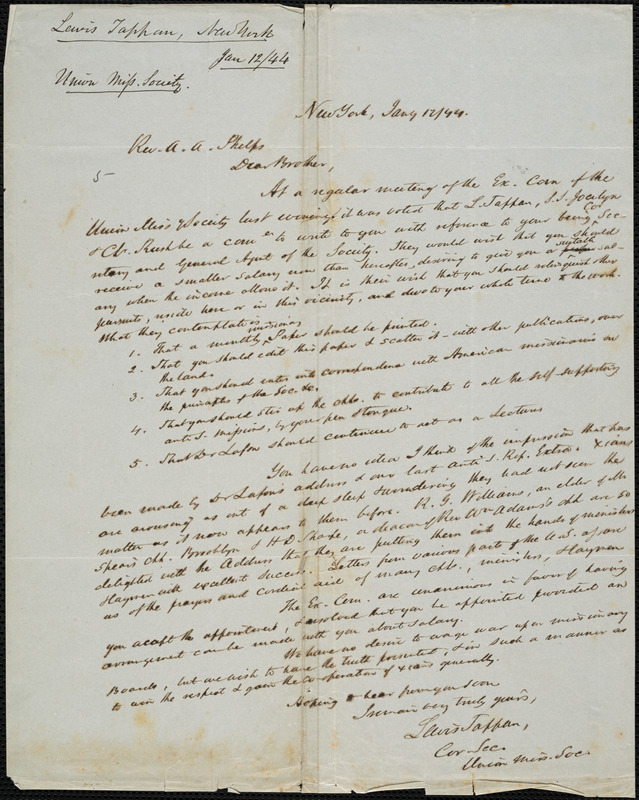 Lewis Tappan, New York
Jan 12/44
Union Miss. Society.
New York, Jany 12/44.
Rev. A. A. Phelps
Dear Brother,
5
At a regular meeting of the Ex. Com of the
Union Miss y Society last evening it was voted that L. Tappan, S. S. Jocelyn
& Ch. Rush be a com ee to write to you with reference to your being Cor Sec-
retary and General Agent of the Society. They would wish that you should
receive a smaller salary now than hereafter, desiring to give you a suitable sal-
ary when the income allows it. It is their wish that you should relinquish other
pursuits, reside here or in this vicinity, and devote your whole time to the work.
What they contemplate is
1. That a monthly missionary Paper should be printed.
2. That you should edit this paper & scatter it - with other publications, over
the land.
3. That you should enter into correspondence with American missionaries on
the principles of the Soc. &c.
4. That you should stir up the chhs. to contribute to all the self-supporting
anti S. missions, by your pen & tongue.
5. That Dr Lafon should continue to act as a Lecturer
You have no idea I think of the impression that has
been made by Dr Lafon's address & our last Anti S. Rep. Extra. Xians
are arousing as out of a deep sleep & wondering they had not seen the
matter as it now appears to them before. R. G. Williams, an elder of Mr
Spear's chh. Brooklyn & H. D. Sharpe, a deacon of Rev Wm Adams's chh are so
delighted with the Address that they are putting them into the hands of ministers
Laymen with excellent success. Letters from various parts of the U.S. assure
us of the prayers and cordial aid of many chhs., ministers, Laymen
The Ex. Com. are unanimous in favor of having
you accept the appointment, & resolved that you be appointed provided an
arrangement can be made with you about salary.
We have no desire to wage war upon missionary
Boards, but we wish to have the truth presented, & in such a manner as
to win the respect & gain the co-operation of Xians generally.
Hoping to hear from you soon
I remain very truly yours,
Lewis Tappan,
Cor. Sec.
Union Miss. Soc.